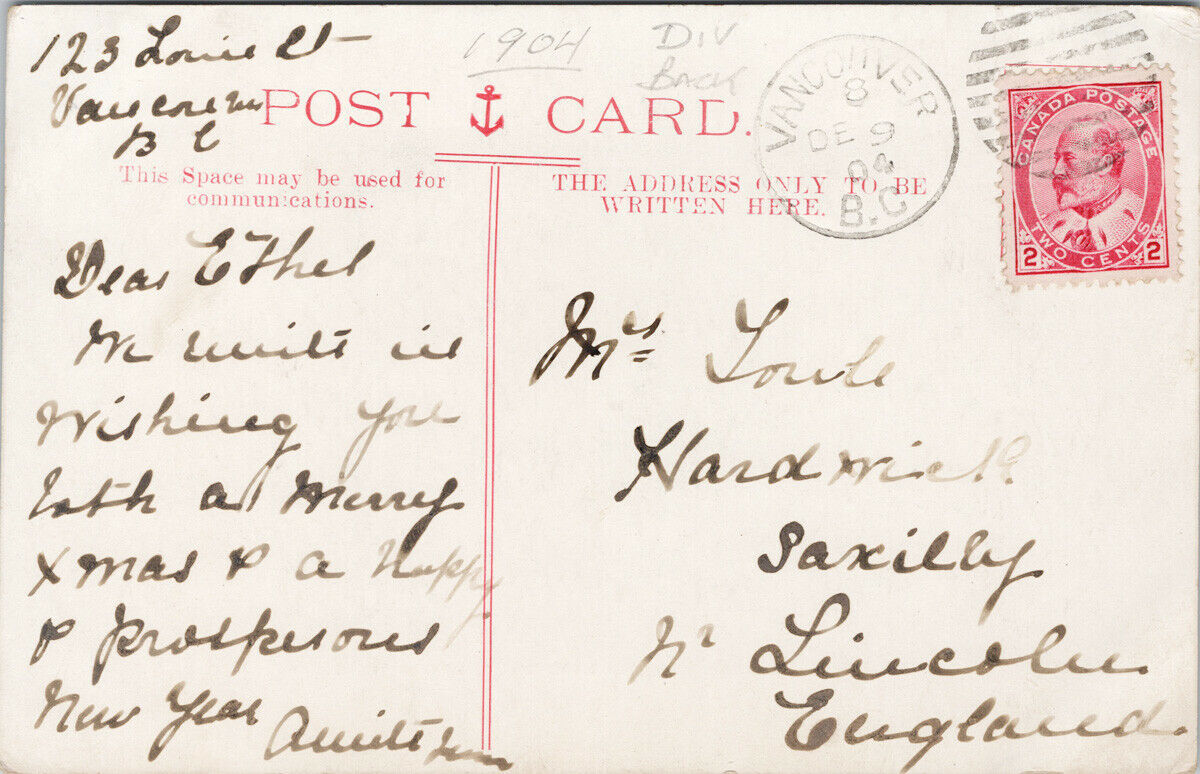 123 Lorne St
Vancouver
B C
1904
Div
Back
POST CARD.
This Space may be used for
communications.
THE ADDRESS ONLY TO BE
WRITTEN HERE.
VANCOUVER
8
DE 9
04
B.C
CANADA POSTAGE
TWO CENTS
2 2
Dear Ethel
We unite in
Wishing you
both a Merry
Xmas & a Happy
& Prosperous
New Year
Mrs
Hardwick
Saxilby
Nr Lincoln
England.